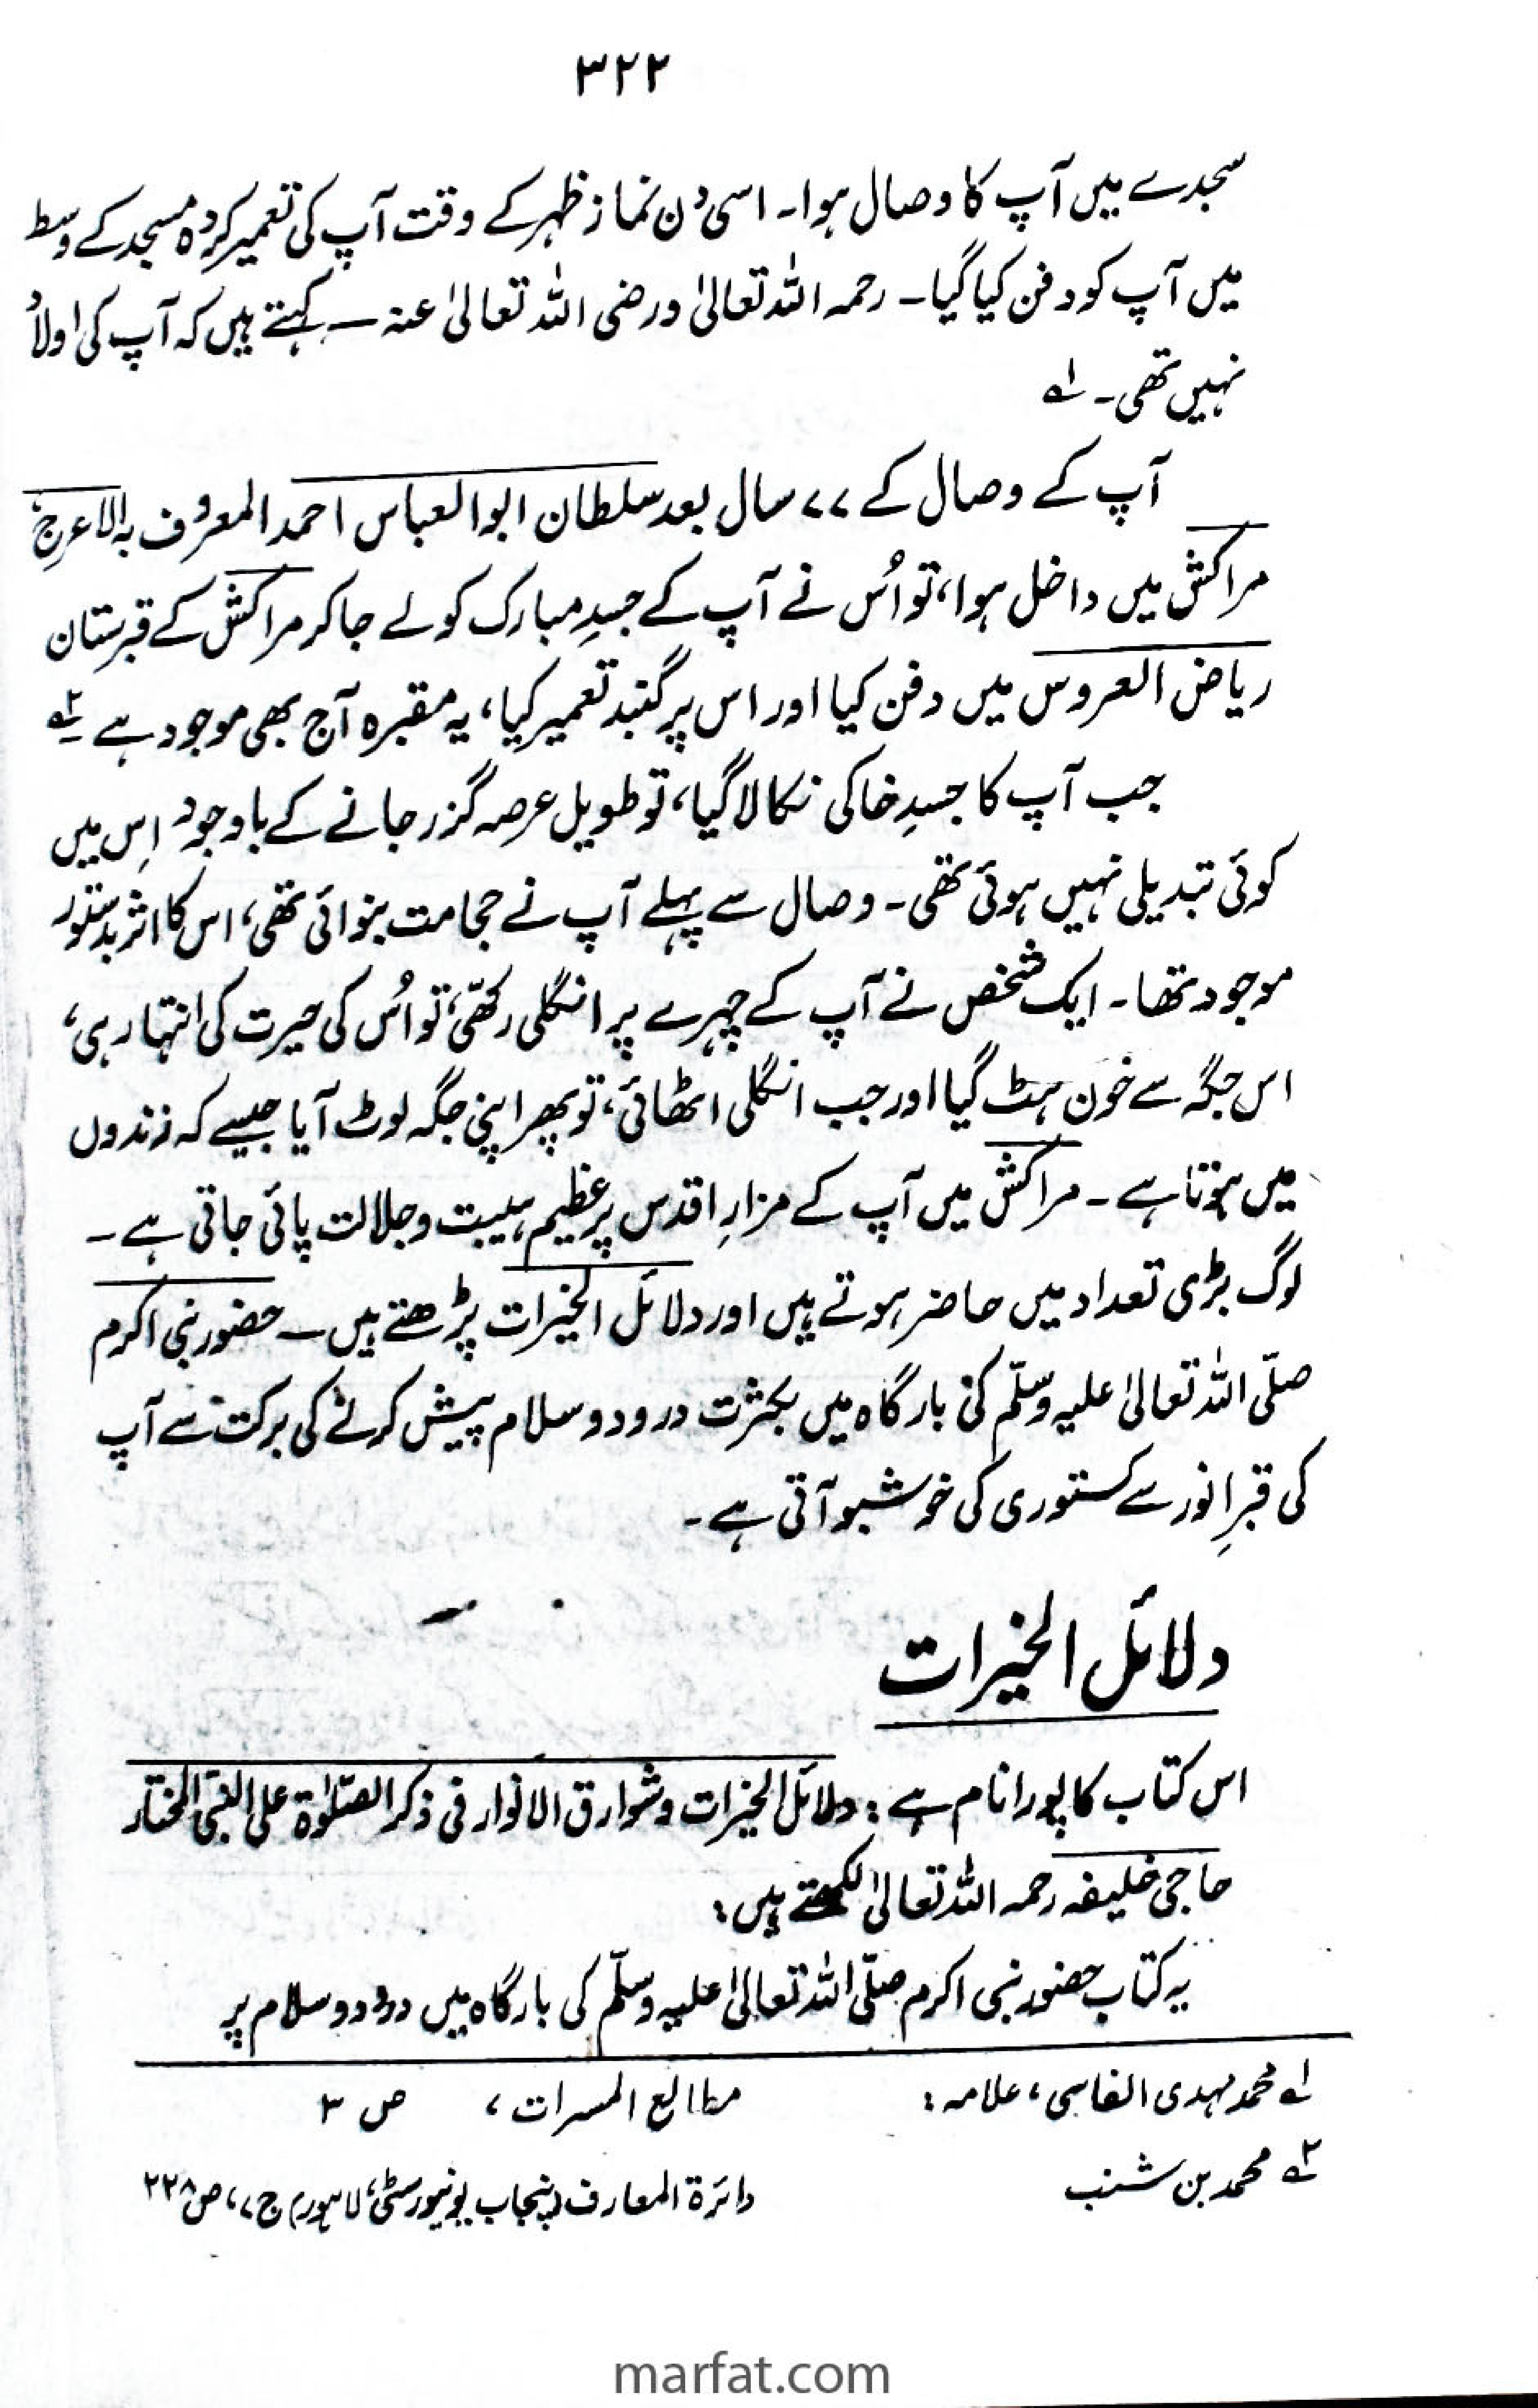 ۳۲۲
سجدے میں آپ کا وصال ہوا۔ اسی دن نماز ظہر کے وقت آپ کی تعمیر کردہ مسجد کے وسط
میں آپ کو دفن کیا گیا۔ رحمہ اللہ تعالیٰ ورضی اللہ تعالیٰ عنہ ۔ کہتے ہیں کہ آپ کی اولاد
نہیں تھی۔ ۱؎
آپ کے وصال کے ۷۷ سال بعد سلطان ابوالعباس احمد المعروف بہ الاعرج
مراکش میں داخل ہوا، تو اُس نے آپ کے جسدِ مبارک کو لے جا کر مراکش کے قبرستان
ریاض العروس میں دفن کیا اور اس پر گنبد تعمیر کیا، یہ مقبرہ آج بھی موجود ہے ۲؎
جب آپ کا جسدِ خاکی نکالا گیا، تو طویل عرصہ گزر جانے کے باوجود اِس میں
کوئی تبدیلی نہیں ہوئی تھی۔ وصال سے پہلے آپ نے حجامت بنوائی تھی، اس کا اثر بدستور
موجود تھا۔ ایک شخص نے آپ کے چہرے پر انگلی رکھّی، تو اُس کی حیرت کی انتہا رہی،
اس جگہ سے خون ہٹ گیا اور جب انگلی اٹھائی، تو پھر اپنی جگہ لوٹ آیا جیسے کہ زندوں
میں ہوتا ہے ۔ مراکش میں آپ کے مزارِ اقدس پر عظیم ہیبت و جلالت پائی جاتی ہے ۔
لوگ بڑی تعداد میں حاضر ہوتے ہیں اور دلائل الخیرات پڑھتے ہیں ۔ حضور نبی اکرم
صلّی اللہ تعالیٰ علیہ وسلّم کی بارگاہ میں بکثرت درود و سلام پیش کرنے کی برکت سے آپ
کی قبرِ انور سے کستوری کی خوشبو آتی ہے ۔
دلائل الخیرات
اس کتاب کا پورا نام ہے : دلائل الخیرات و شوارق الانوار فی ذکر الصّلوٰۃ علی النبی المختار
حاجی خلیفہ رحمہ اللہ تعالیٰ لکھتے ہیں :
یہ کتاب حضور نبی اکرم صلّی اللہ تعالیٰ علیہ وسلّم کی بارگاہ میں درود و سلام پر
۱؎ محمد مہدی الفاسی، علامہ : مطالع المسرات، ص ۳
۲؎ محمد بن شنب دائرۃ المعارف (پنجاب یونیورسٹی، لاہور) ج ۷، ص ۲۲۸
marfat.com